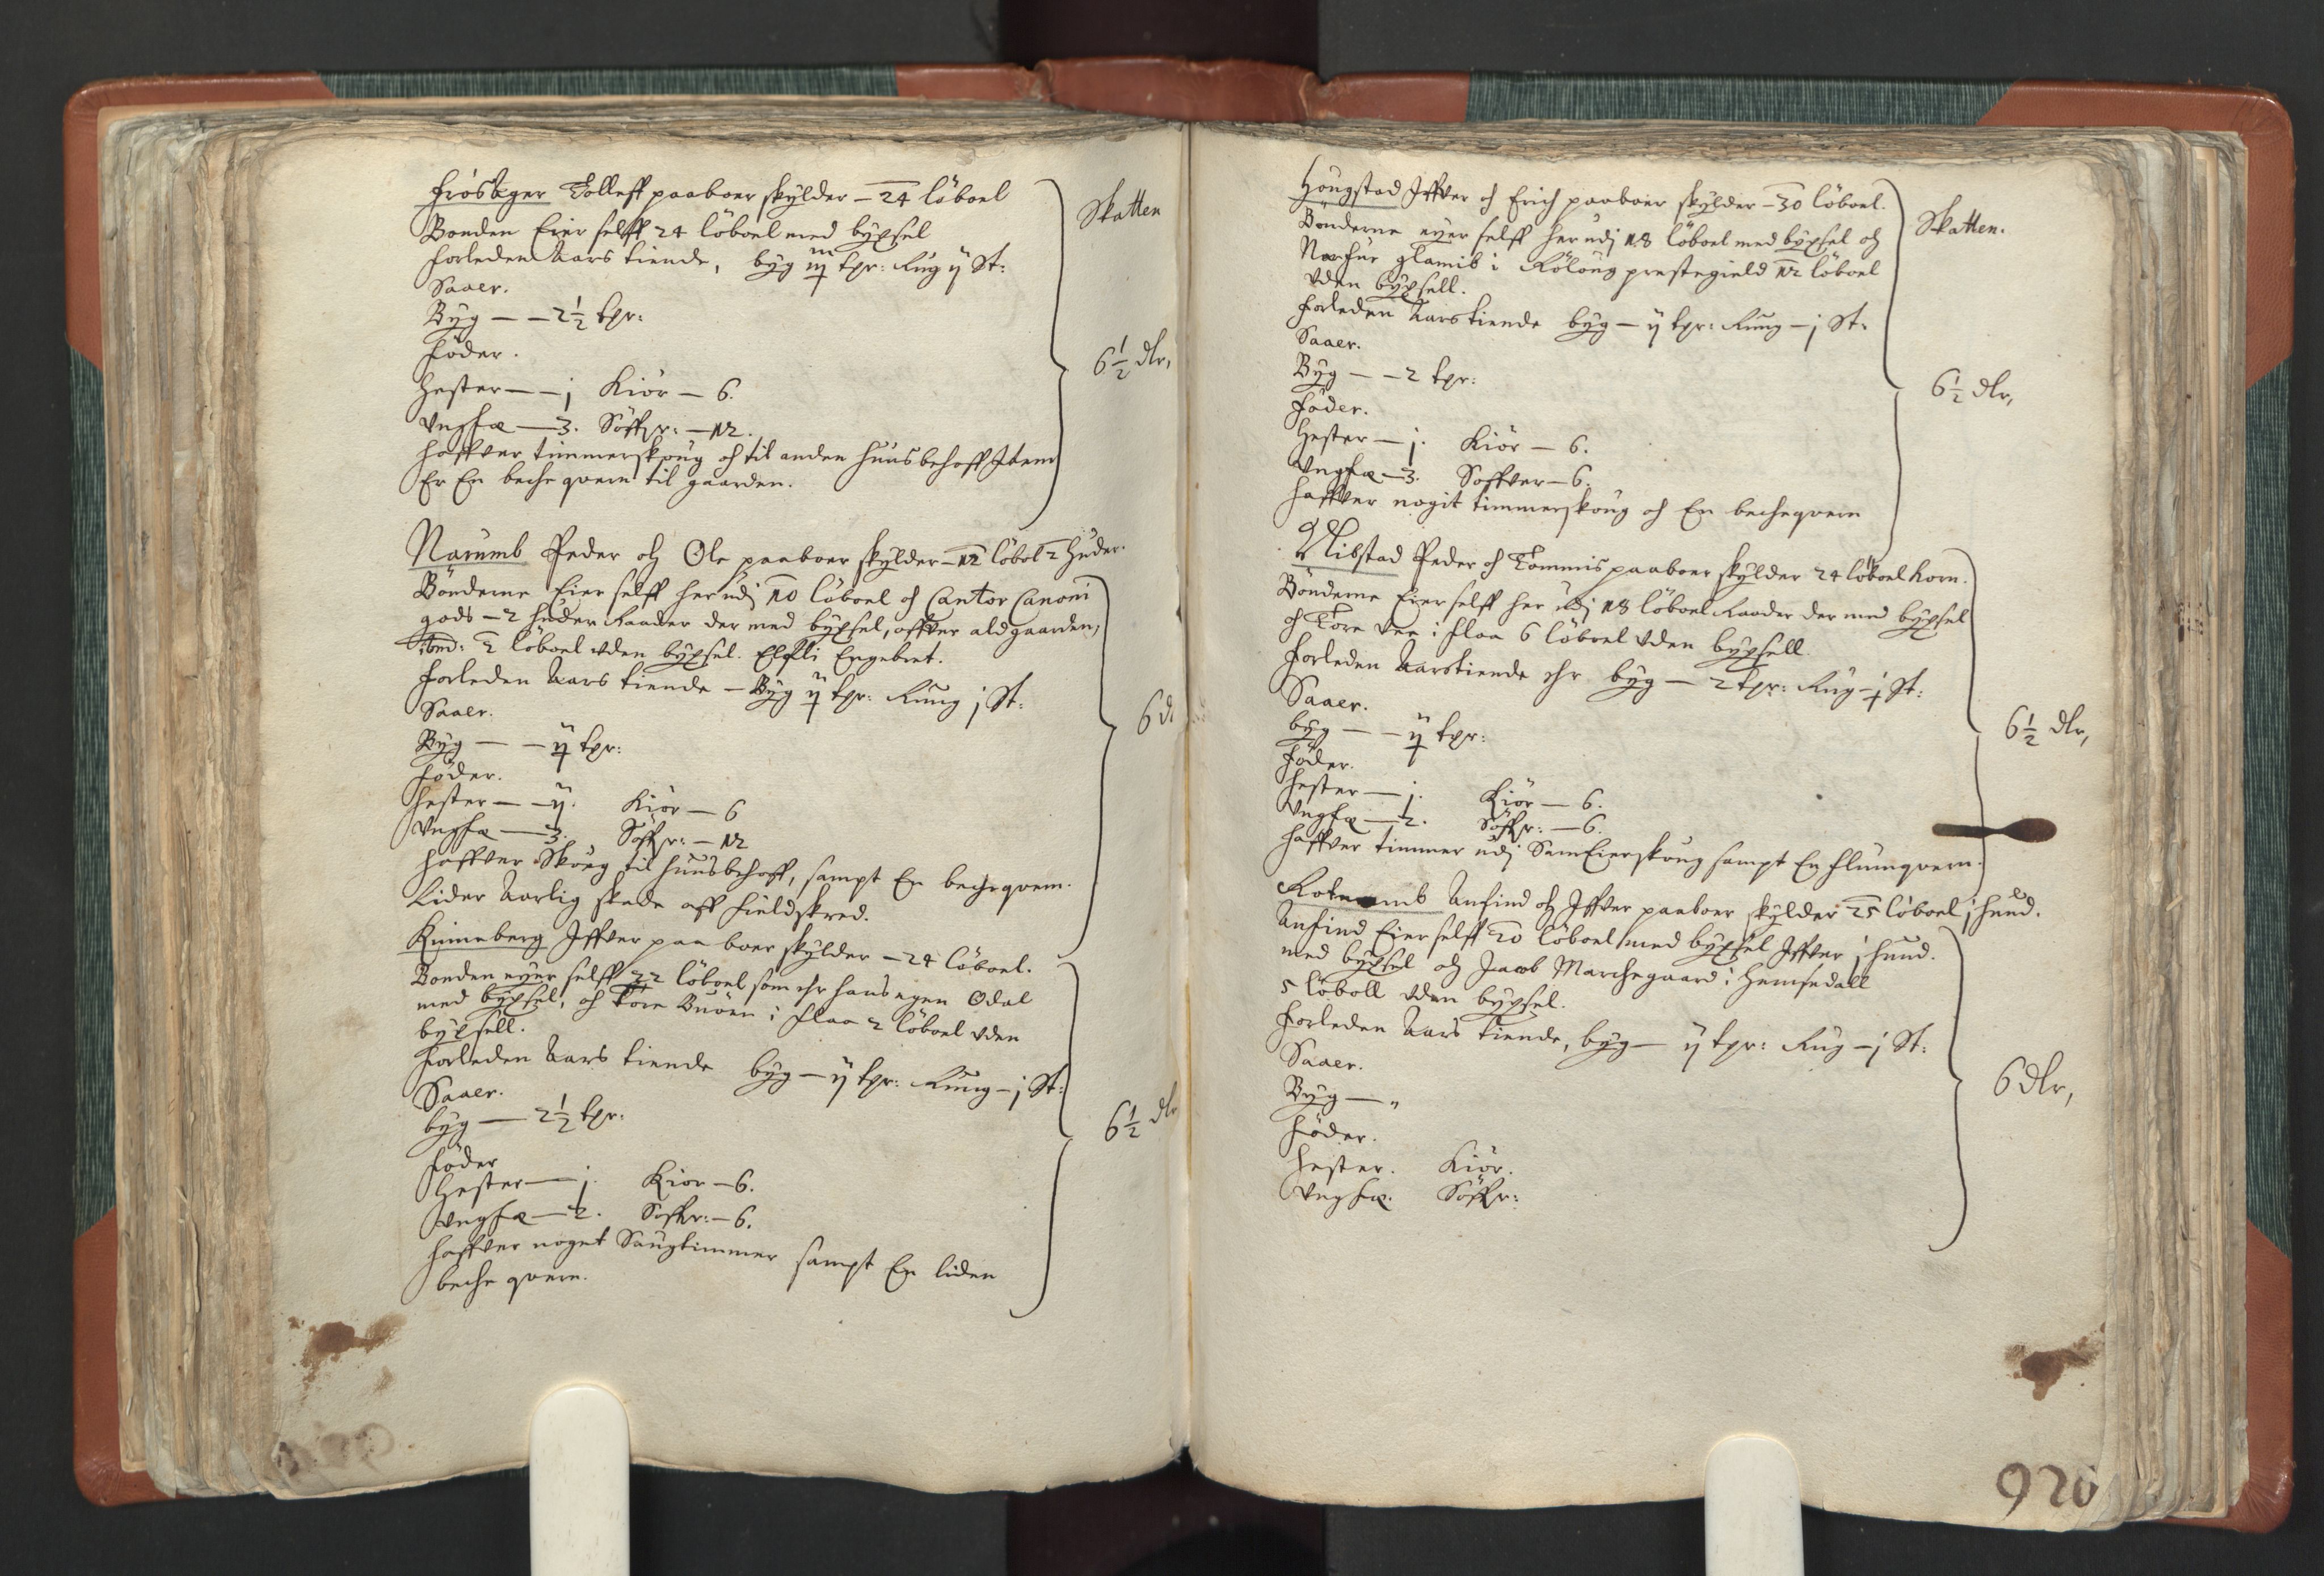 Frösager Tolleff paaboer skylder – 24 löboel
Bonden Eier selff 24 löboel med böxsel
Forleden Aars tiende, byg iij tpr: Rug ij St:
Saaer.
Byg – – 2 1/2 tpr:
Föder.
Hester – – j Kiör – 6.
Vngfæ – 3. Söffr: – 12.
Haffver timmerskoug oh til anden Huusbehoff Item
Er En beche qvern til gaarden.
Skatten
6 1/2 dlr,
Narumb Peder oh Ole paaboer skylder – 12 löbol 2 Huder.
Bönderne Eier selff her udj 10 löboel oh Cantor Canoni
gods – 2 huder Raader der med böxsel, offver ald gaarden,
2 löboel vden böxsel. Engebret.
Forleden Aars tiende – Byg ij tpr: Rung j St:
Saaer.
Byg – – ij tpr:
Föder.
Hester – – ij. Kiör – 6
Vngfæ – 3. Söffr: – 12
Haffver Skoug til huusbehoff, sampt En bechqvern.
Lider Aarlig skade aff fieldskred.
6 d
Kinneberg Iffver paa boer skylder – 24 löboel.
Bonden eyer selff 22 löboel som ehr hans egen Odal
med böxsel, oh Tore i Flaa 2 löboel vden
böxsell.
Forleden Aars tiende byg – ij tpr: Rung – j St:
Saaer.
byg – 2 1/2 tpr:
Föder
Hester – j. Kiör – 6.
Vngfæ – 2. Soffr: – 6.
Haffver noget Saugtimmer sampt En liden
beche qvern.
6 1/2 dlr
Hougstad Iffver oh Erich paaboer skylder – 30 löboel.
Bönderne eyer selff her udj 18 löboel med böxsel oh
glamib i prestegield 12 löboel
vden böxsell.
Forleden Aars tiende byg – ij tpr: Rung – j St:
Saaer.
Byg – – 2 tpr:
Föder.
Hester – j. Kiör – 6.
Vngfæ – 3. Soffver – 6.
Haffver nogit timmerskoug oh En bechqvern
Skatten.
6 1/2 dlr,
Peder oh Tommis paaboer skylder 24 löboel korn.
Bönderne Eier selff her udj 18 löboel Raader der med böxsel
oh Tore i Flaa 6 löboel vden böxsell.
Forleden Aarstiende ehr byg – 2 tpr: Rug – j St:
Saaer.
byg – – ij tpr:
Föder.
Hester – j. Kiör – 6.
Vngfæ – 2. Söffr: – 6.
Haffver timmer udj SamEierskoug sampt En flumqvern.
6 1/2 dlr,
Anfind oh Iffver paaboer skylder 25 löboel j hud.
Anfind Eier selff 20 löboel med böxsel Iffver j hud.
med böxsel oh Jacob Marchegaard i Hemsedall
5 löboll vden böxsel.
Forleden Aars tiende, byg – ij tpr: Rug – j St:
Saaer.
Byg – "
Föder.
Hester. Kiör.
Vngfæ. Söffr:
6 dlr,
920